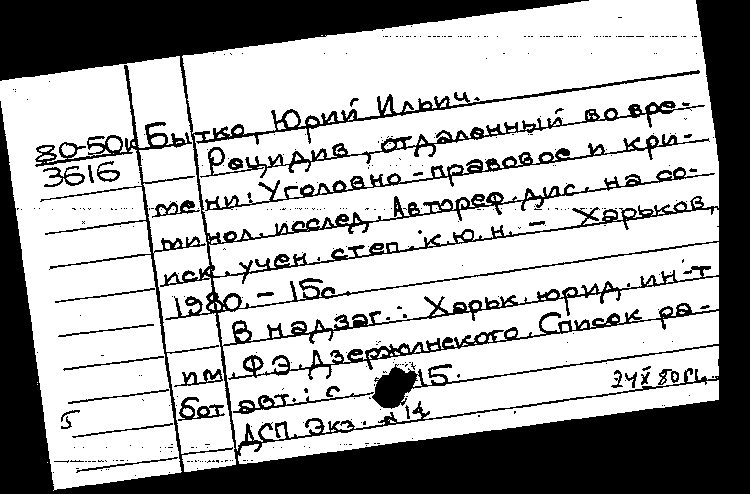 80-50к Бытко, Юрий Ильич.
3616 Рецидив, отдаленный во вре-
мени: Уголовно-правовое и кри-
минол. исслед. Автореф. дис. на со-
иск. учен. степ. к.ю.н. - Харьков,
1980. - 15с.
В надзаг.: Харьк. юрид. ин-т
им. Ф.Э. Дзержинского. Список ра-
бот авт.: с. 15.
ДСП. Экз. 14